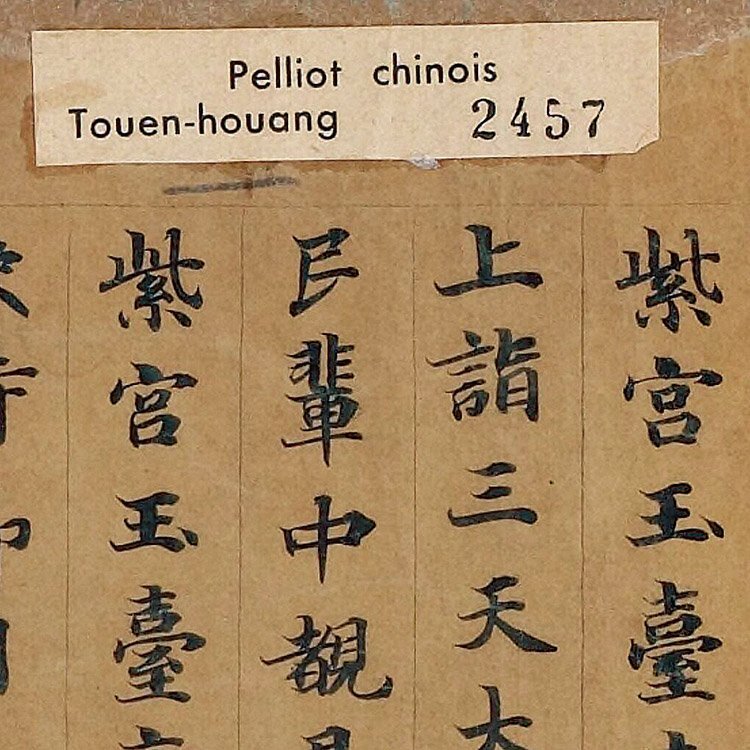 Pelliot chinois
Touen-houang 2457
紫宮玉臺
上詣三天大
民輩中覩
紫宮玉臺